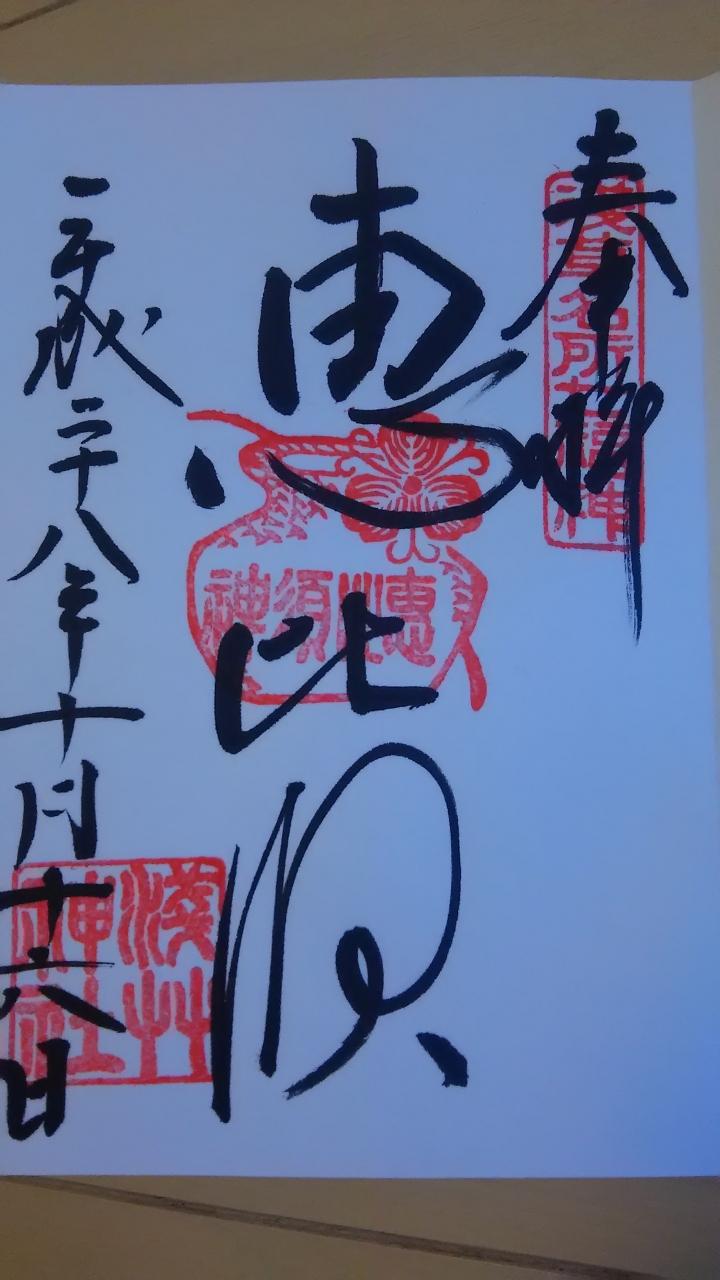 奉拝
浅草名所七福神
恵比須
恵比須神
平成二十八年十月十六日
淺草神社